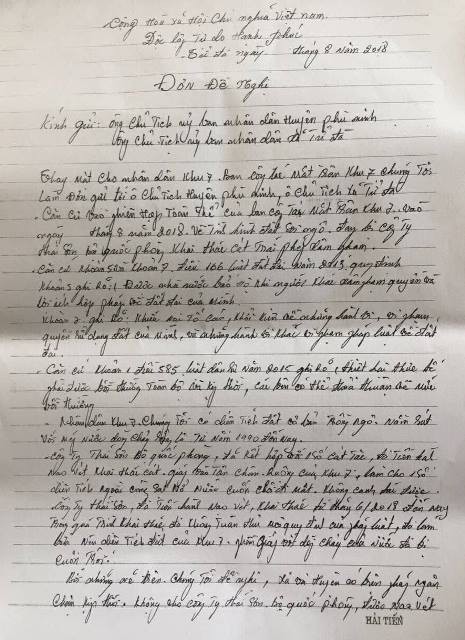 Cộng Hoà xã Hội Chủ nghĩa Việt nam
Độc lập Tự do Hạnh phúc
Tử Đà ngày tháng 8 năm 2018
Đơn Đề Nghị
Kính gửi: Ông Chủ Tịch uỷ ban nhân dân Huyện phù ninh
Ông Chủ Tịch uỷ ban nhân dân xã Tử đà
Thay mặt cho nhân dân Khu 7. Ban công tác Mặt Trận Khu 7 Chúng Tôi
Làm Đơn gửi tới ô Chủ Tịch Huyện phù ninh, ô Chủ Tịch xã Tử đà
- Căn cứ Vào phiên họp Toàn Thể của ban công Tác Mặt Trận Khu 7. Vào
ngày tháng 8 năm 2018. Về Tình hình đất bãi ngô. Đang bị Công Ty
Thái Sơn bộ quốc phòng Khai thác Cát Trái phép xâm phạm.
- Căn cứ Khoản 5 Khoản 7. Điều 166 luật đất đai năm 2013 quy định
Khoản 5 ghi Rõ: Được nhà nước bảo hộ khi người Khác xâm phạm quyền và
lợi ích hợp pháp về đất đai của mình.
Khoản 7. ghi Rõ: Khiếu nại Tố cáo, Khởi Kiện về những hành vi, vi phạm
quyền sử dụng đất của mình, và những hành vi khác vi phạm pháp luật về đất
đai.
- Căn cứ Khoản 1 điều 585 luật dân sự năm 2015 ghi Rõ, Thiệt hại thực tế
phải được bồi thường Toàn bộ và kịp thời, các bên có thể thoả thuận về mức
bồi thường
- Nhân dân Khu 7. Chúng Tôi có diện Tích đất cơ bản Trồng ngô. Nằm sát
Với mép nước dòng chảy Sông lô Từ năm 1990 đến nay.
- Công Ty Thái Sơn Bộ quốc phòng, đã Kết hợp với số Cát Tặc, đã Tiến hành
Nạo Vét Khai thác cát. quá gần Chân Ruộng của Khu 7, làm cho số
diện Tích ngoài cùng Sạt lở Nước cuốn trôi đi mất. Không canh tác được
Công Ty Thái Sơn, đã Tiến hành Nạo Vét, Khai thác từ tháng 6/2018 đến nay
Trong quá Trình Khai thác, đã Không Tuân thủ mọi quy định của pháp luật, đã làm
Nên diện Tích đất của Khu 7. phần giáp với dòng chảy của Nước đã bị
Cuốn Trôi.
Với những nội trên. Chúng Tôi đề nghị, Xã và Huyện có biện pháp ngăn
Chặn kịp thời. Không cho công Ty Thái Sơn. bộ quốc phòng, được Nạo Vét
HẢI TIẾN